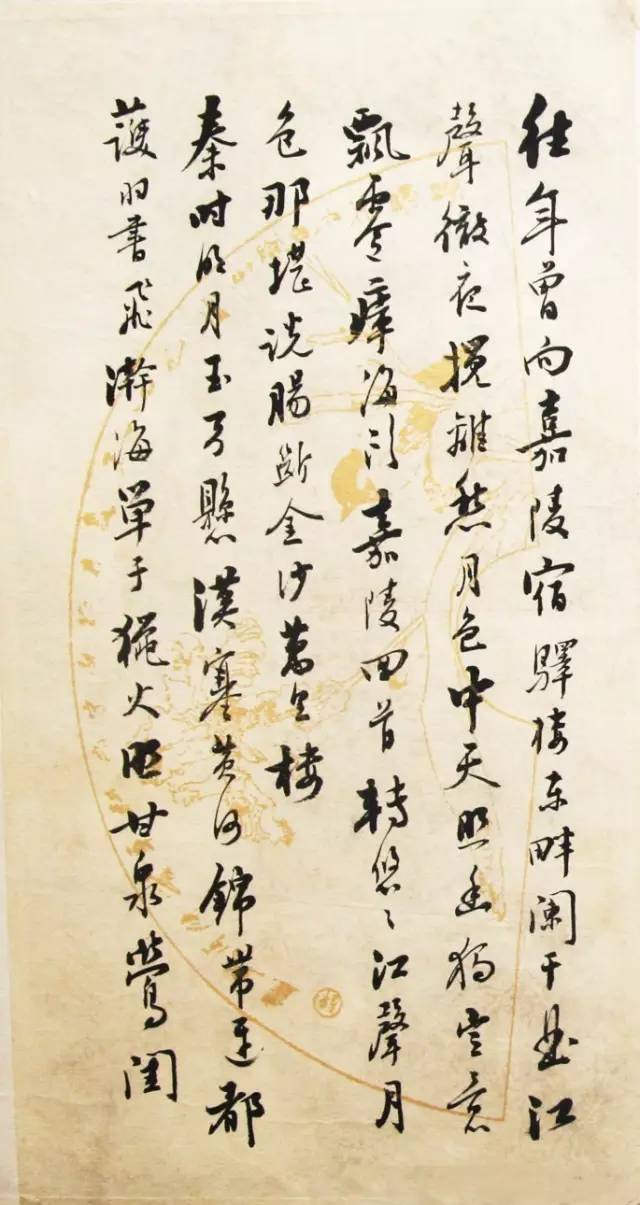 往年曾向嘉陵宿驛樓東畔闌干曲江
聲徹夜攪離愁月色中天照幽獨豈意
飄零瘴海頭嘉陵回首轉悠々江聲月
色那堪説腸斷金沙萬里樓
秦時明月玉弓懸漢塞黄河錦帶連都
護羽書飛瀚海單于獵火照甘泉鶯閨